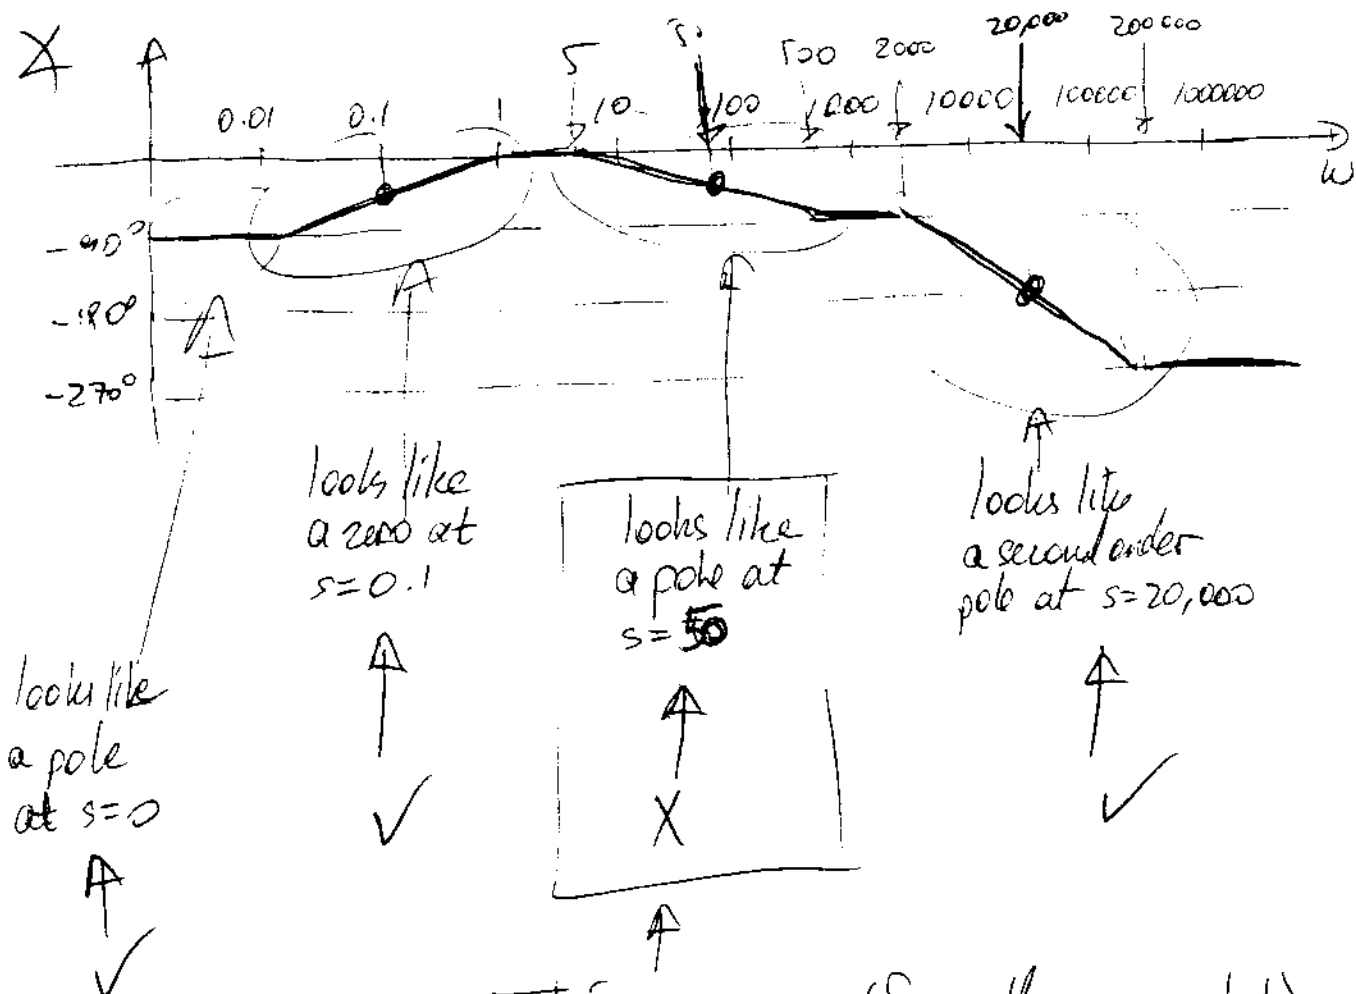 ∠
5 50 500 2000 20,000 200000
0.01 0.1 1 10 100 1000 10000 100000 1000000
ω
-90°
-180°
-270°
looks like
a zero at
s=0.1
looks like
a pole at
s=50
looks like
a second order
pole at s=20,000
looks like
a pole
at s=0
✓
✓
X
✓